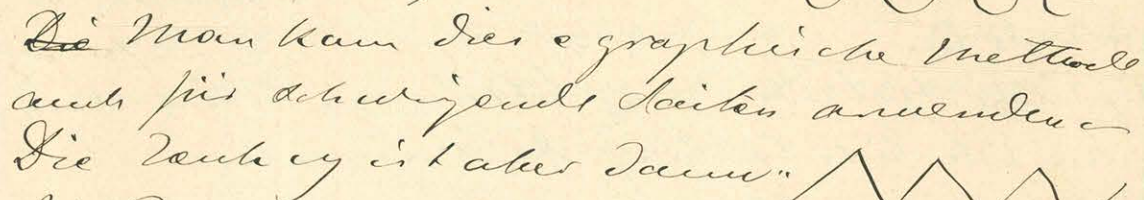 ~~Die~~ Man kann diese graphische Methode
auch für schwingende Saiten anwenden
Die ist aber dann